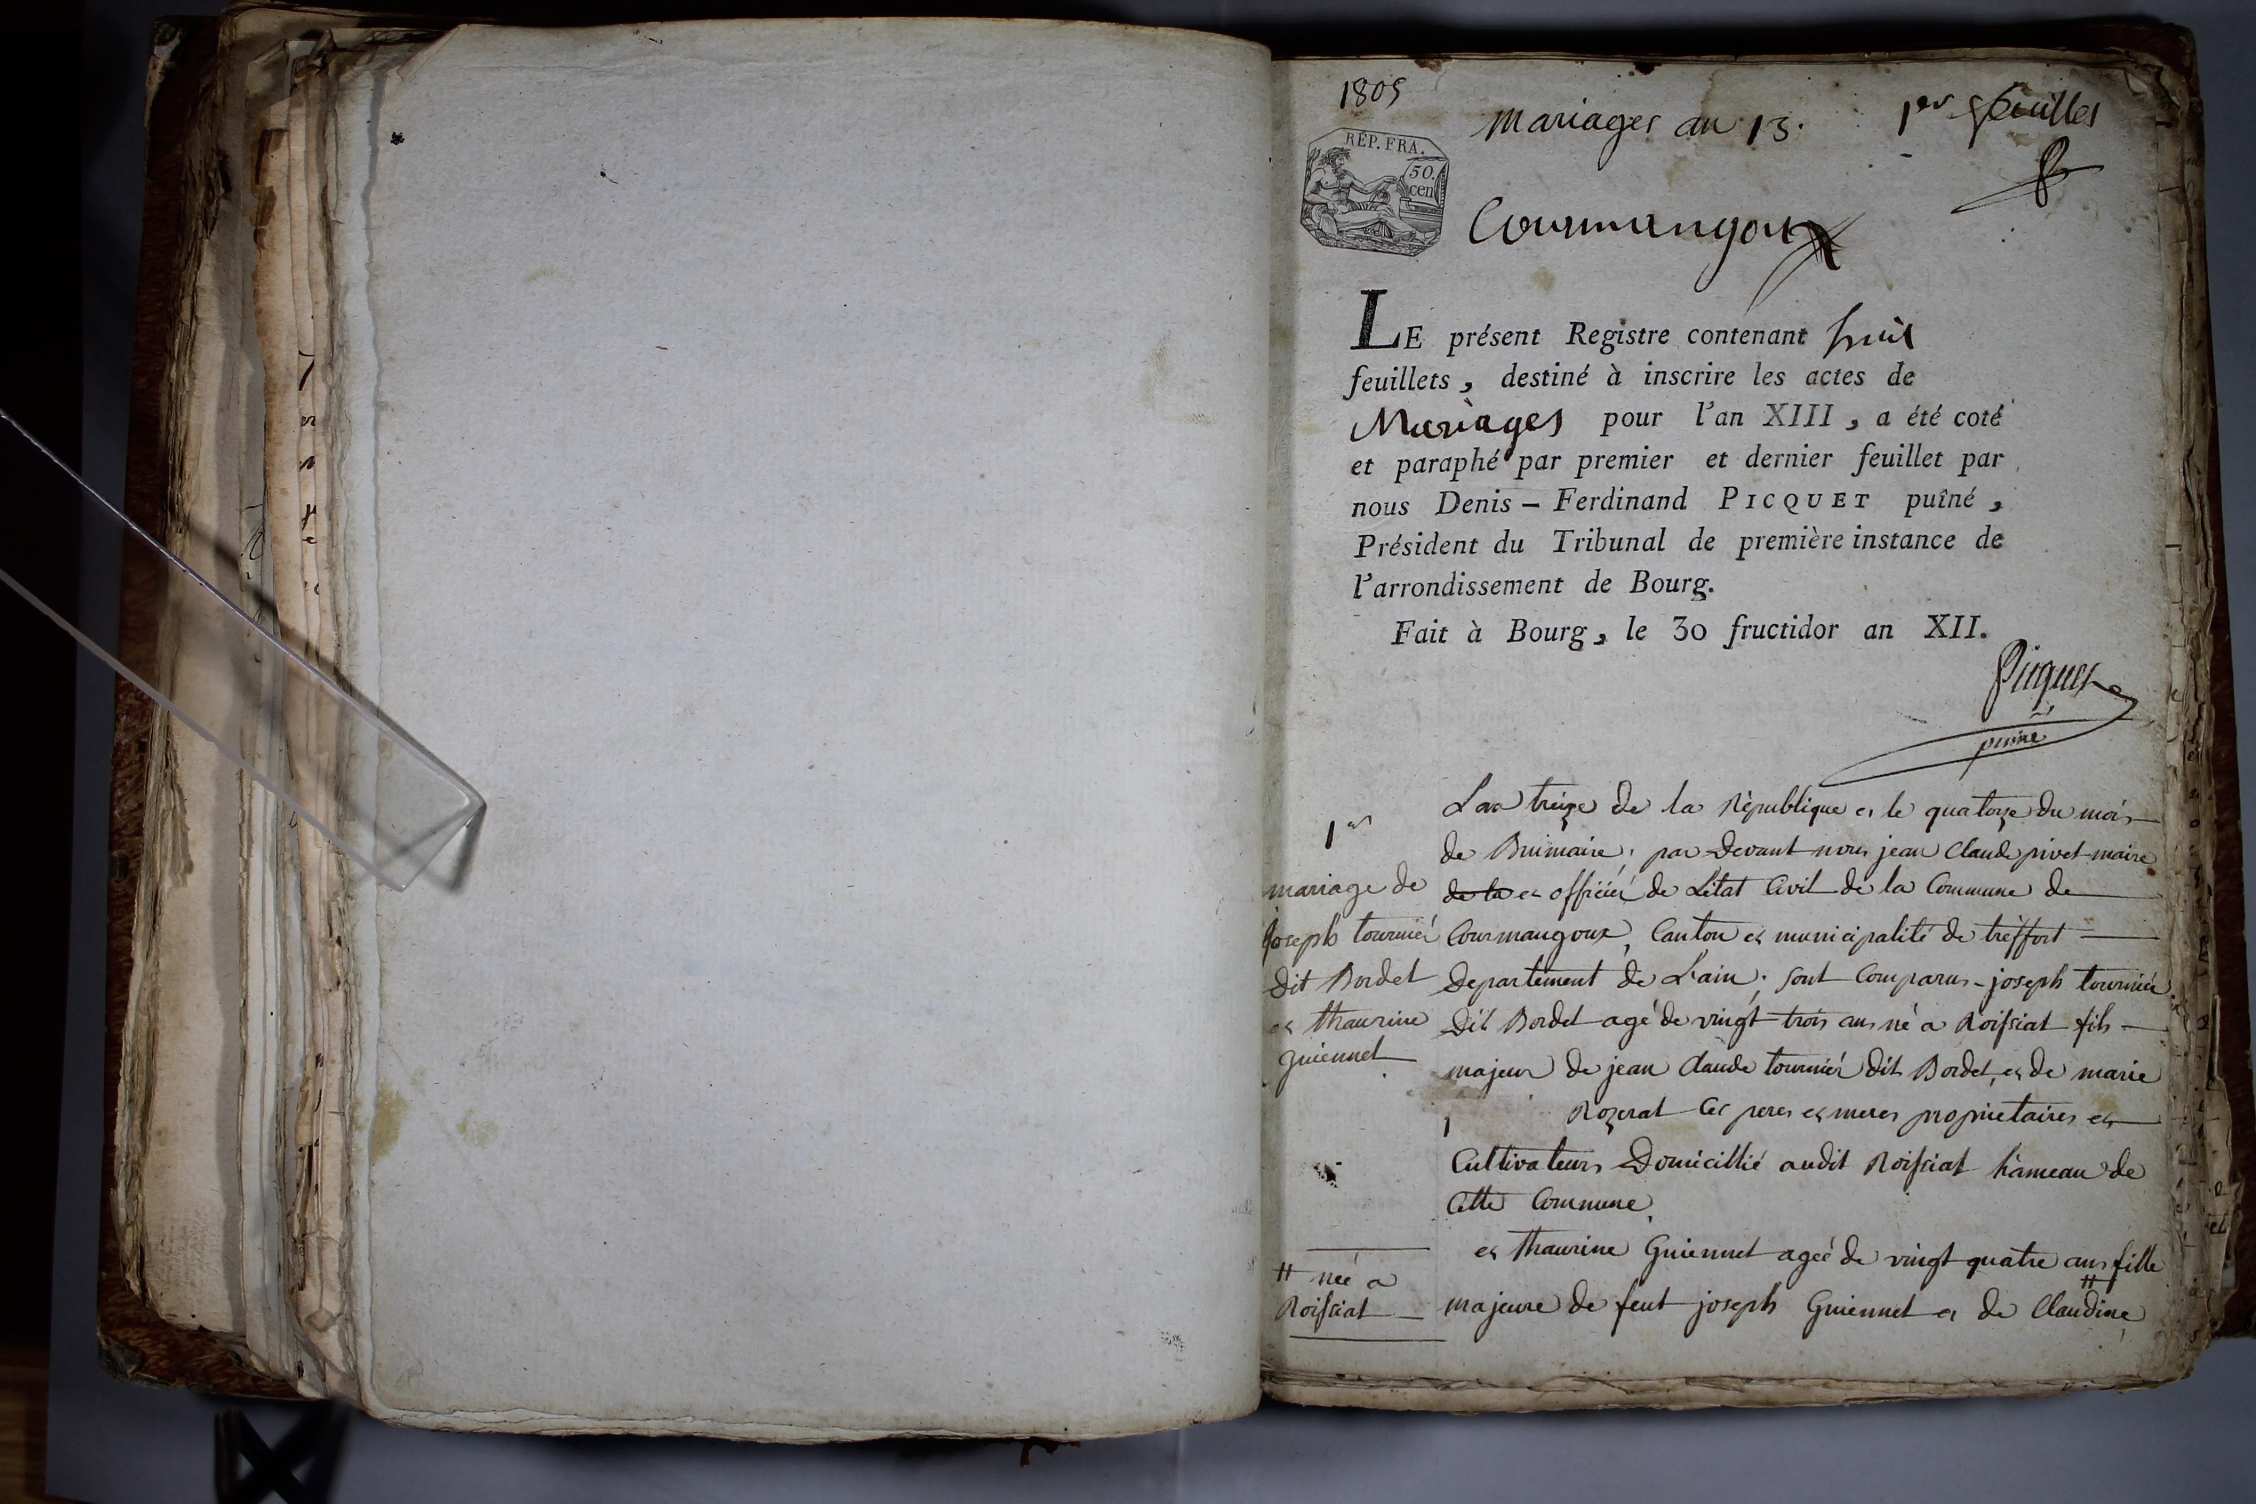 1805
mariages an 13.
1er feuillet
RÉP. FRA.
50.
cen
Courmangoux
LE présent Registre contenant huit
feuillets, destiné à inscrire les actes de
Mariages pour l'an XIII, a été coté
et paraphé par premier et dernier feuillet par
nous Denis-Ferdinand PICQUET puîné,
Président du Tribunal de première instance de
l'arrondissement de Bourg.
Fait à Bourg, le 30 fructidor an XII.
Picquet
puiné
1er
mariage de
joseph tourniér
dit Bordet
et thaurine
guiennet
Lan treize de la République et le quatorze du mois
de Brumaire, par Devant nous jean Claude pivet maire
de la et officiér de Létat Civil de la Commune de
Courmangoux, Canton et municipalité de tréffort
Departement de L'ain; sont Comparus joseph tourniér
Dit Bordet agé de vingt trois ans né a Roissiat fils
majeur de jean Claude tourniér dit Bordet, et de marie
Rozerat Ces peres et meres propriétaires et
Cultivateurs Domicillié audit Roissiat hameau de
Cette Commune,
et thaurine Guiennet ageé de vingt quatre ans fille
majeure de feut joseph Guiennet et de Claudine
# neé a
Roissiat